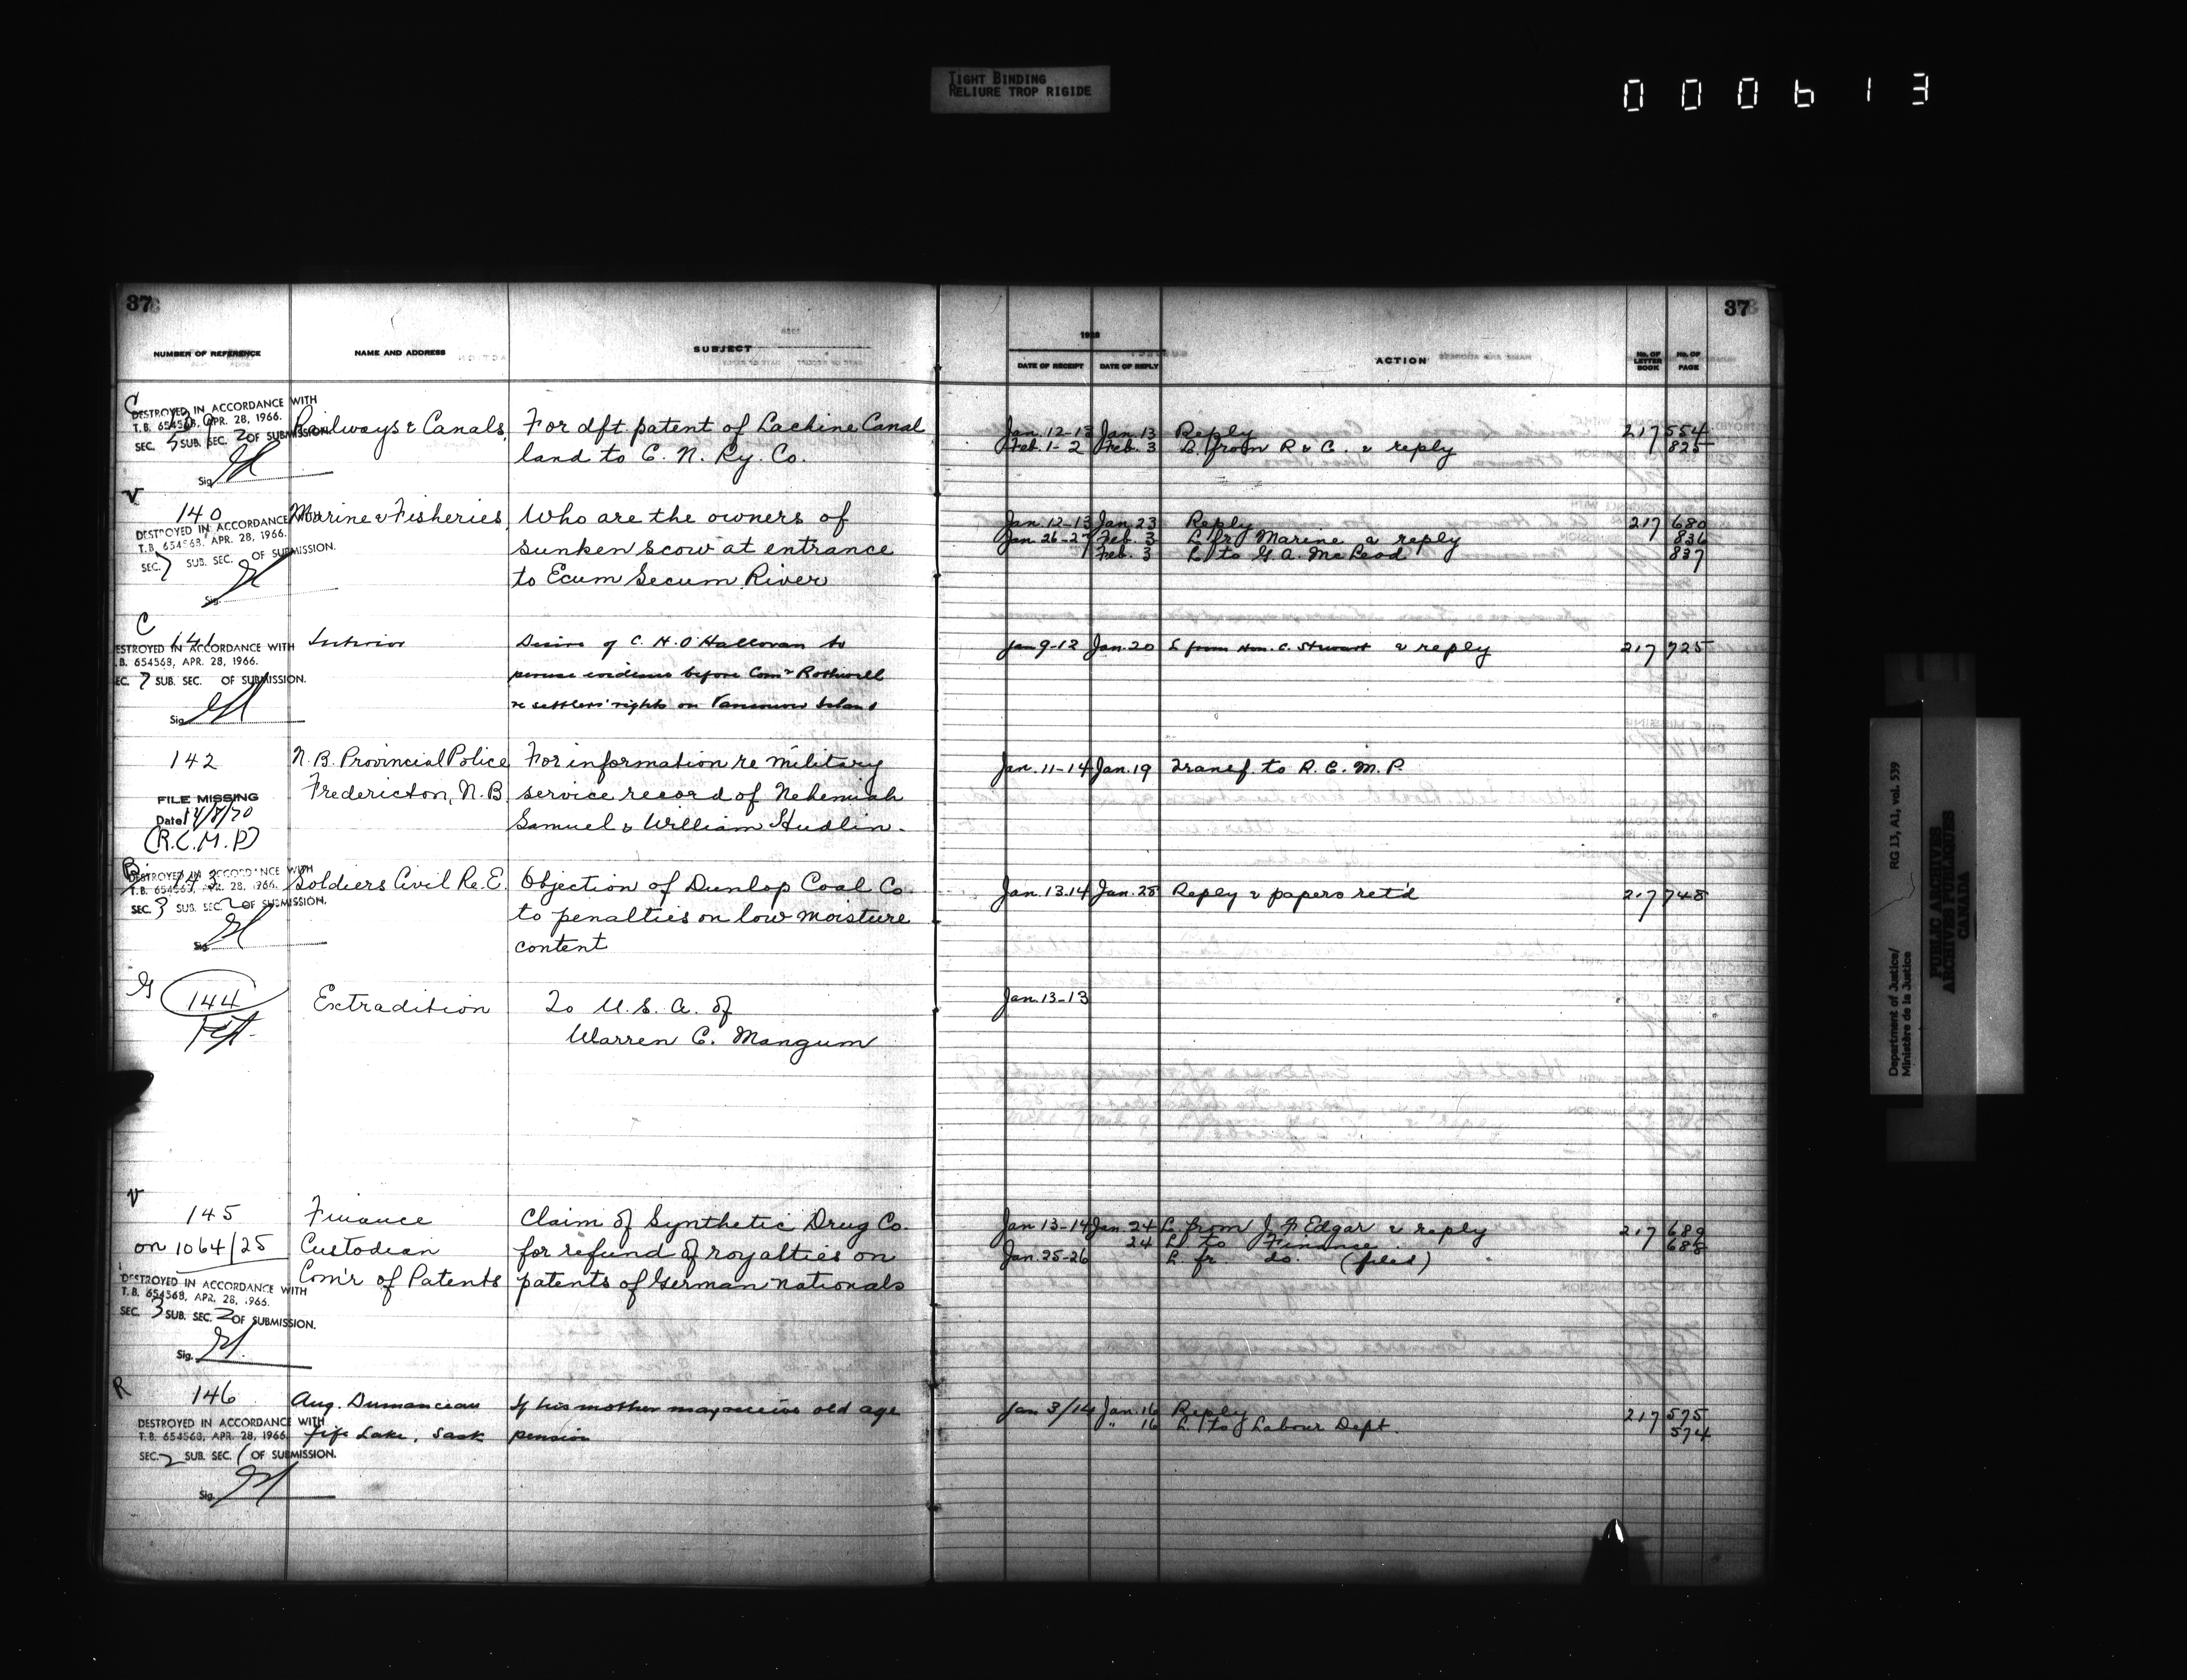 TIGHT BINDING
RELIURE TROP RIGIDE
000613
37
37
NUMBER OF REFERENCE NAME AND ADDRESS SUBJECT
1928
DATE OF RECEIPT DATE OF REPLY ACTION No. OF LETTER BOOK No. OF PAGE
C
139 Railways & Canals, For dft. patent of Lachine Canal
land to C. N. Ry. Co.
DESTROYED IN ACCORDANCE WITH
T.B. 654568, APR. 28, 1966.
SEC. 3 SUB. SEC. 2 OF SUBMISSION.
Sig.
Jan. 12-13 Jan. 13 Reply 217 554
Feb. 1-2 Feb. 3 L. from R & C. & reply 825
V
140 Marine & Fisheries, Who are the owners of
sunken scow at entrance
to Ecum Secum River
DESTROYED IN ACCORDANCE WITH
T.B. 654568, APR. 28, 1966.
SEC. 7 SUB. SEC. OF SUBMISSION.
Sig.
Jan. 12-13 Jan. 23 Reply 217 680
Jan 26-27 Feb. 3 L fr Marine & reply 836
Feb. 3 L to G. A. McLeod 837
C
141 Interior Desire of C. H. O'Halloran to
peruse evidence before Comr Rothwell
re settlers' rights on Vancouver Island
DESTROYED IN ACCORDANCE WITH
T.B. 654568, APR. 28, 1966.
SEC. 7 SUB. SEC. OF SUBMISSION.
Sig.
Jan 9-12 Jan. 20 L from Hon. C. Stewart & reply 217 725
142 N. B. Provincial Police For information re military
Fredericton, N. B. service record of Nehemiah
Samuel & William Hudlin.
FILE MISSING
Date 14/8/70
(R.C.M.P)
Jan. 11-14 Jan. 19 Transf. to R. C. M. P.
B
143 Soldiers Civil Re. E. Objection of Dunlop Coal Co
to penalties on low moisture
content
DESTROYED IN ACCORDANCE WITH
T.B. 654568, APR. 28, 1966.
SEC. 3 SUB. SEC. 2 OF SUBMISSION.
Sig.
Jan. 13.14 Jan. 25 Reply & papers ret'd 217 748
G
144 Extradition To U. S. A. of
Warren C. Mangum
Jan. 13-13
V
145 Finance Claim of Synthetic Drug Co.
on 1064/25 Custodian for refund of royalties on
Com'r of Patents patents of German nationals
DESTROYED IN ACCORDANCE WITH
T.B. 654568, APR. 28, 1966.
SEC. 3 SUB. SEC. 2 OF SUBMISSION.
Sig.
Jan 13-14 Jan. 24 L. from J. F. Edgar & reply 217 689
24 L. to Finance 688
Jan. 25-26 L. fr. do. (filed)
R
146 Aug. Dumanceau If his mother may receive old age
Fife Lake, Sask pension
DESTROYED IN ACCORDANCE WITH
T.B. 654568, APR. 28, 1966.
SEC. 2 SUB. SEC. 1 OF SUBMISSION.
Sig.
Jan 3/14 Jan. 16 Reply 217 575
" 16 L. to Labour Dept. 574
Department of Justice/
Ministère de la Justice
RG 13, A1, vol. 539
PUBLIC ARCHIVES
ARCHIVES PUBLIQUES
CANADA